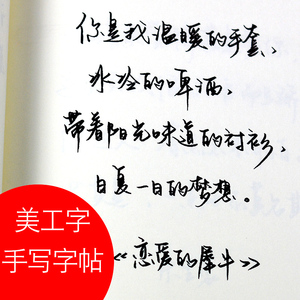 你是我温暖的手套，
冰冷的啤酒，
带着阳光味道的衬衫，
日复一日的梦想。
《恋爱的犀牛》
美工字
手写字帖